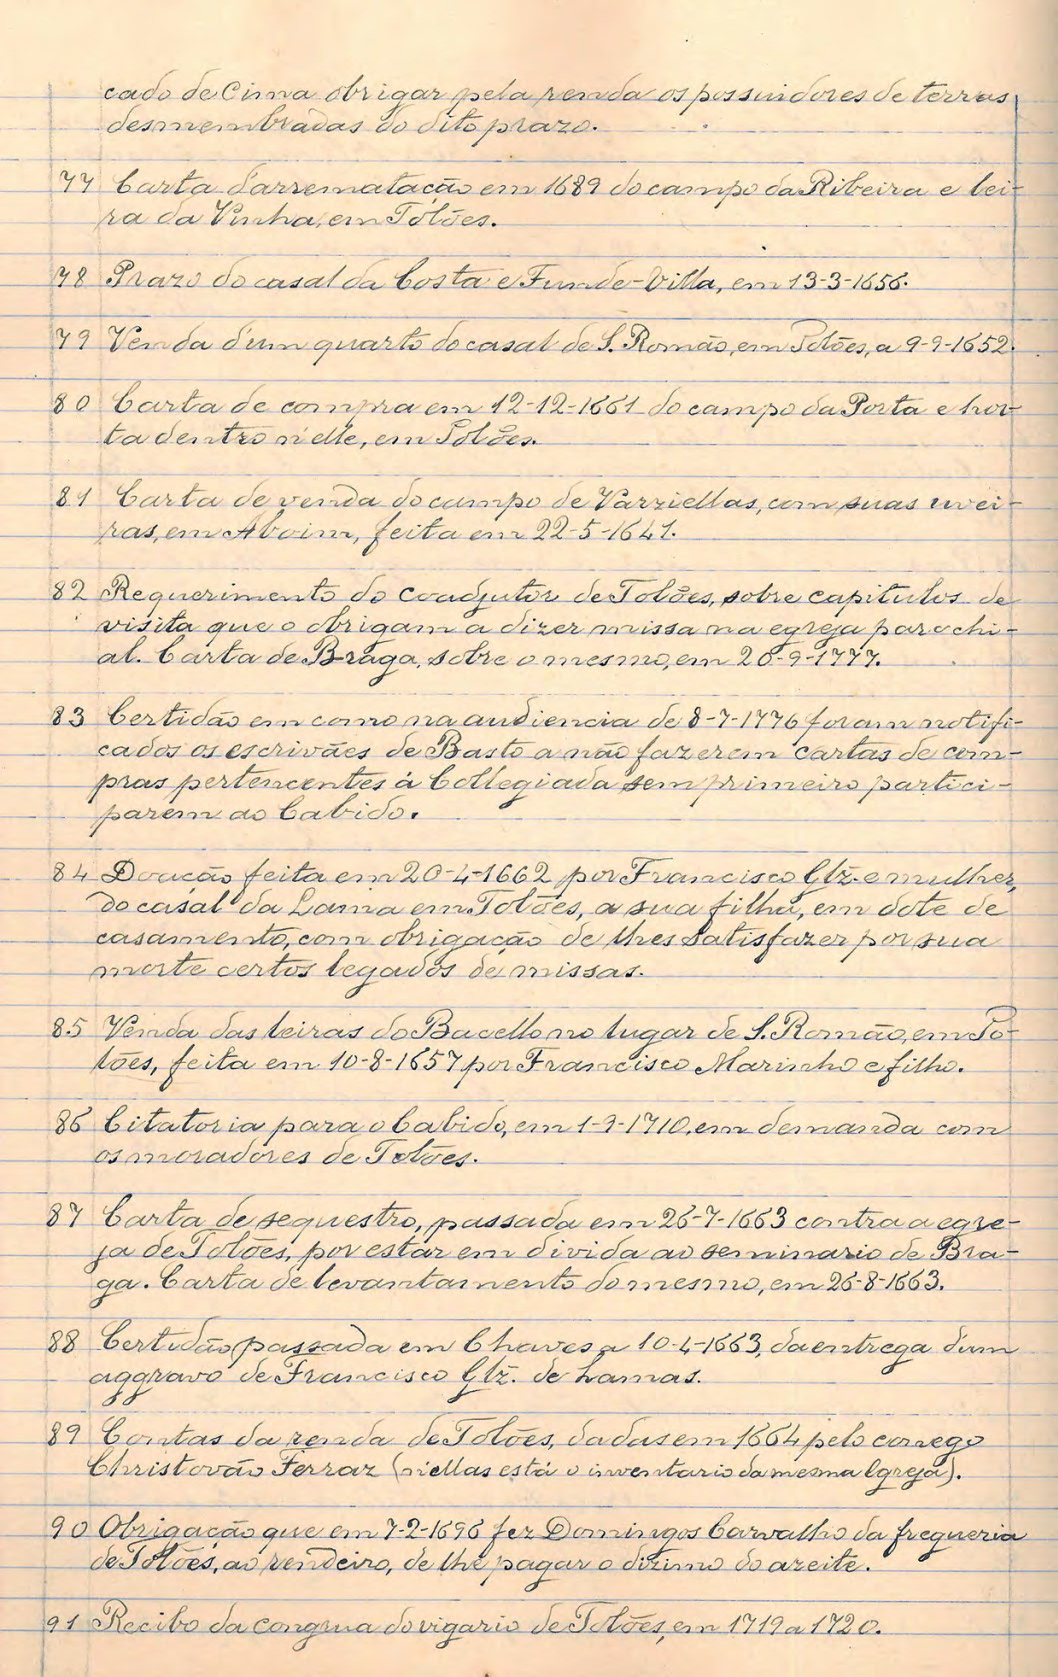 cado de Cima obrigar pela renda os possuidores de terras
desmembradas do dito prazo.
77 Carta d'arrematação em 1689 do campo da Ribeira e lei-
ra da Vinha, em Tolões.
78 Prazo do casal da Costa e Fundo-Villa, em 13-3-1656.
79 Venda d'um quarto do casal de S. Romão, em Tolões, a 9-9-1652.
80 Carta de compra em 12-12-1661 do campo da Porta e hor-
ta dentro n'elle, em Tolões.
81 Carta de venda do campo de Varziellas, com suas uvei-
ras, em Aboim, feita em 22-5-1641.
82 Requerimento do coadjutor de Tolões, sobre capitulos de
visita que o obrigam a dizer missa na egreja parochi-
al. Carta de Braga, sobre o mesmo, em 26-9-1777.
83 Certidão em como na audiencia de 8-7-1776 foram notifi-
cados os escrivães de Basto a não fazerem cartas de com-
pras pertencentes á Collegiada sem primeiro partici-
parem ao Cabido.
84 Doação feita em 20-4-1662 por Francisco Glz. e mulher,
do casal da Lama em Tolões, a sua filha, em dote de
casamento, com obrigação de lhes satisfazer por sua
morte certos legados de missas.
85 Venda das leiras do Bacello no lugar de S. Romão, em To-
lões, feita em 10-8-1657 por Francisco Marinho e filho.
86 Citatoria para o Cabido, em 1-9-1710, em demanda com
os moradores de Tolões.
87 Carta de sequestro, passada em 26-7-1663 contra a egre-
ja de Tolões, por estar em divida ao seminario de Bra-
ga. Carta de levantamento do mesmo, em 26-8-1663.
88 Certidão passada em Chaves a 10-4-1663, da entrega d'um
aggravo de Francisco Glz. de Lamas.
89 Contas da renda de Tolões, dadas em 1664 pelo conego
Christovão Ferraz (n'ellas está o inventario da mesma Egreja).
90 Obrigação que em 7-2-1696 fez Domingos Carvalho da freguezia
de Tolões, ao rendeiro, de lhe pagar o dizimo do azeite.
91 Recibo da congrua do vigario de Tolões, em 1719 a 1720.